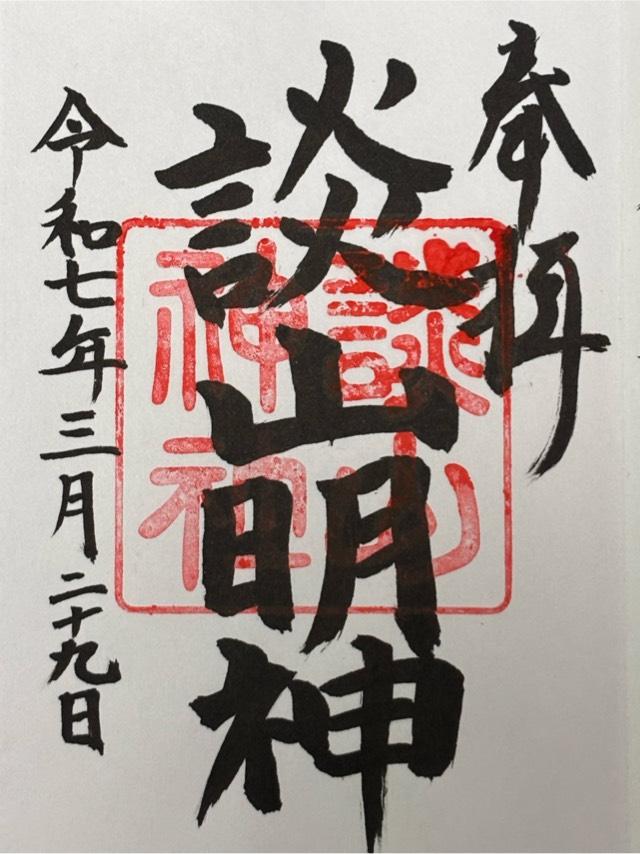 奉拝
談山明神
談山神社
令和七年三月二十九日